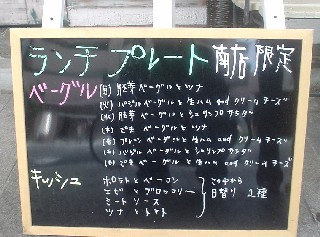 ランチ プレート 南店 限定
ベーグル
(月) 胚芽 ベーグルと ツナ
(火) バジルベーグルと 生ハム and クリームチーズ
(水) 胚芽 ベーグルと シュリンプサラダ
(木) ごま ベーグルと ツナ
(金) プレーンベーグルと 生ハム and クリームチーズ
(土) バジルベーグルと シュリンプサラダ
(日) ごまベーグルと 生ハム and クリームチーズ
キッシュ
ポテトと ベーコン
エビと ブロッコリー
ミートソース
ツナと トマト
この中から
日替り 2種